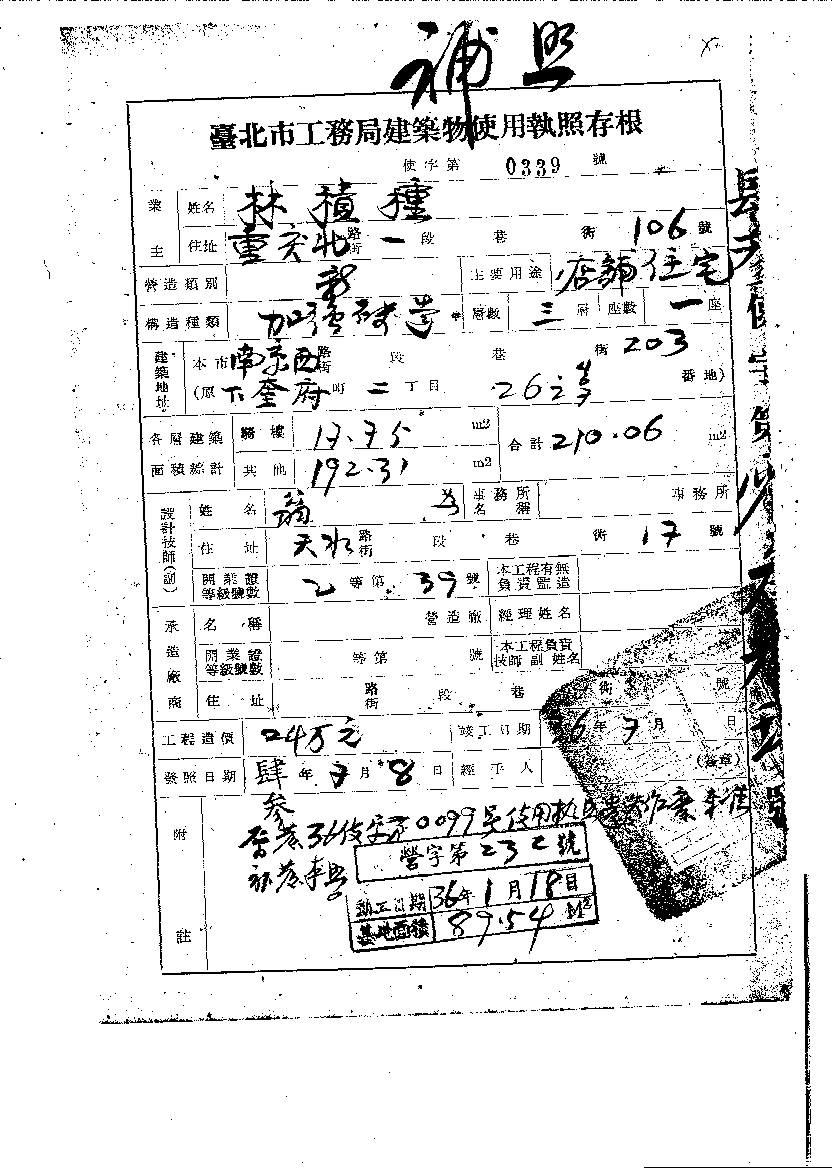 補照
臺北市工務局建築物使用執照存根
使字第 0339 號
業主 姓名 林積種
住址 重慶北 路街 一 段 巷 街 106 號
營造類別 新 主要用途 店鋪住宅
構造種類 加強磚造 層數 三 層 座數 一 座
建築地址 本市 南京西 路街 段 巷 街 203
(原 下奎府 町 二 丁目 26之 番地)
各層建築面積綜計 騎樓 17.75 m2 合計 210.06 m2
其他 192.31 m2
設計技師(副) 姓名 翁 事務所名稱 事務所
住址 天水 路街 段 巷 街 17 號
開業證等級號數 乙 等第 39 號 本工程有無負責監造
承造廠商 名稱 營造廠 經理姓名
開業證等級號數 等第 號 本工程負責技師副姓名
住址 路街 段 巷 街 號
工程造價 24万元 竣工日期 36年7月 日
發照日期 肆年7月8日 經手人 (簽章)
附註
36使字第0099号使用执照
營字第232號
動工日期 36年1月18日
基地面積 89.54 M2